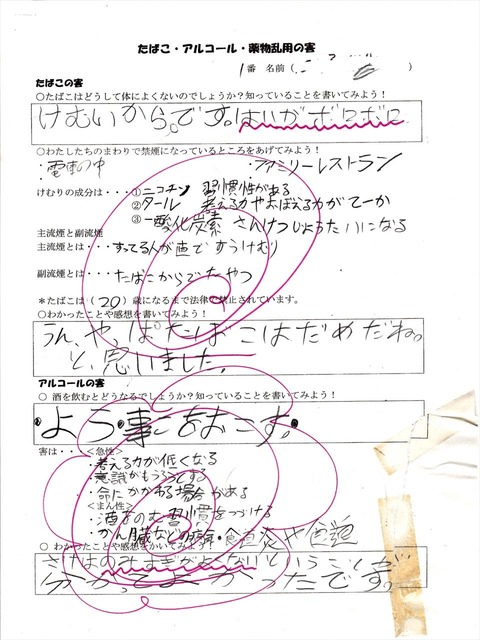 たばこ・アルコール・薬物乱用の害
1番 名前（ ）
たばこの害
○たばこはどうして体によくないのでしょうか？知っていることを書いてみよう！
けむいから。です。はいがボロボロ
○わたしたちのまわりで禁煙になっているところをあげてみよう！
・電車の中 ・ファミリーレストラン
けむりの成分は・・・①ニコチン 習慣性がある
②タール 考える力やおぼえる力がてーか
③一酸化炭素 さんけつじょうたいになる
主流煙と副流煙
主流煙とは・・・すってる人が直ですうけむり
副流煙とは・・・たばこからでたやつ
＊たばこは（20）歳になるまで法律で禁止されています。
○わかったことや感想を書いてみよう！
うん、や、ぱたばこはだめだね。
と、思いました。
アルコールの害
○ 酒を飲むとどうなるでしょうか？知っていることを書いてみよう！
・よう・事こをおこす。
害は・・・＜急性＞
・考える力が低くなる
・意識がもうろうとする
・命にかかわる場合がある
＜まん性＞
・酒をのむ習慣をつづける
・かん臓などの病・食道炎や
○ わかったことや感想をかいてみよう！
さけはのみすぎがよくないということが
分かってよかったです。